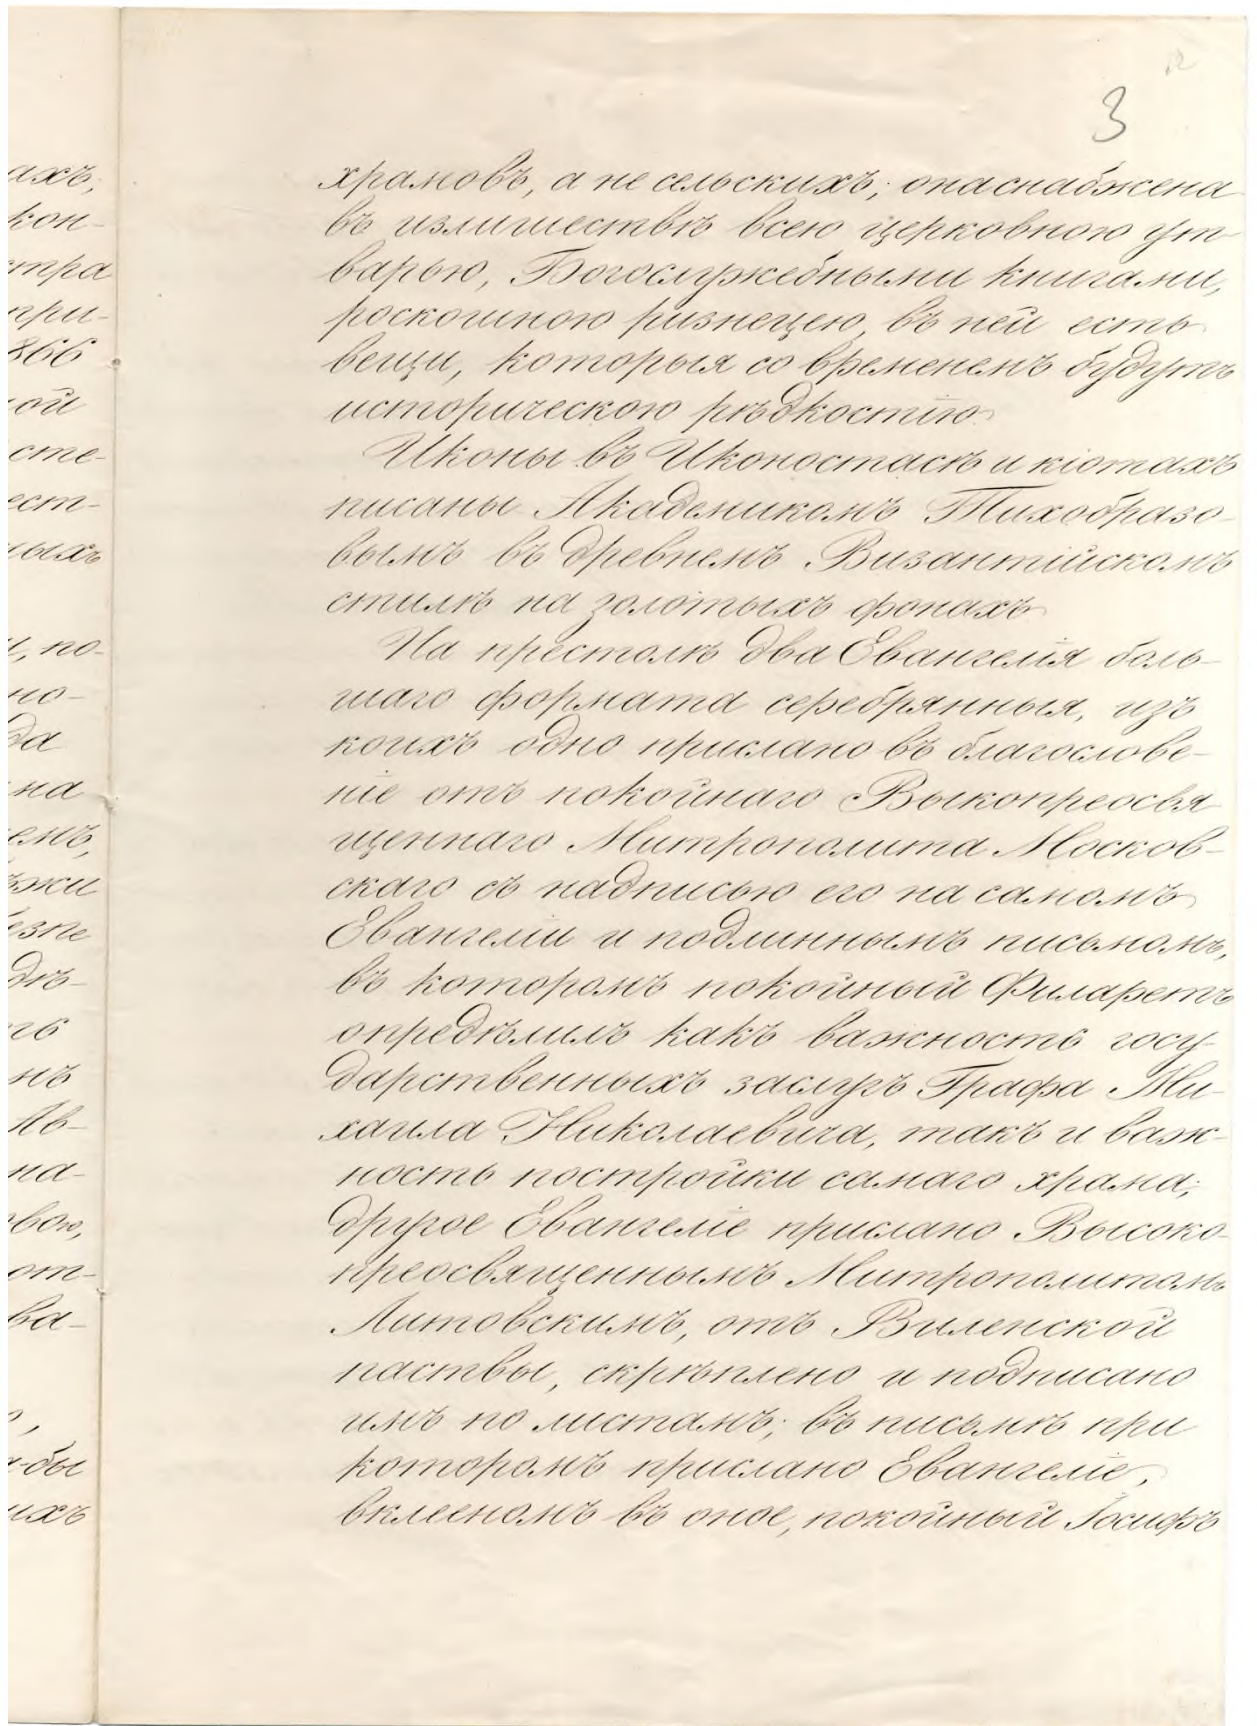 3
храмовъ, а не сельскихъ; она снабжена
въ излишествѣ всею церковною ут-
варью, Богослужебными книгами,
роскошною ризнецею, въ ней есть
вещи, которыя со временемъ будутъ
историческою рѣдкостію.
Иконы въ Иконостасѣ и кіотахъ
писаны Академикомъ Тихобразо-
вымъ въ древнемъ Византійскомъ
стилѣ на золотыхъ фонахъ
На престолѣ два Евангелія боль-
шаго формата серебрянныя, изъ
коихъ одно прислано въ благослове-
ніе отъ покойнаго Выкопреосвя
щеннаго Митрополита Москов-
скаго съ надписью его на самомъ
Евангеліи и подлиннымъ письмомъ,
въ которомъ покойный Филаретъ
опредѣлилъ какъ важность госу-
дарственныхъ заслугъ Графа Ми-
хаила Николаевича, такъ и важ-
ность постройки самаго храма;
другое Евангеліе прислано Высоко-
преосвященнымъ Митрополитомъ
Литовскимъ, отъ Виленской
паствы, скрѣплено и подписано
имъ по листамъ; въ письмѣ при
которомъ прислано Евангеліе,
вклееномъ въ оное, покойный Іосифъ
ахъ,
кон-
стра
при-
866
ой
сте-
ест-
ныхъ
и, по-
но-
да
на
емъ,
ѣжи
езне
дѣ-
гъ
нъ
Ав-
на-
овою,
от-
ва-
бы
ихъ